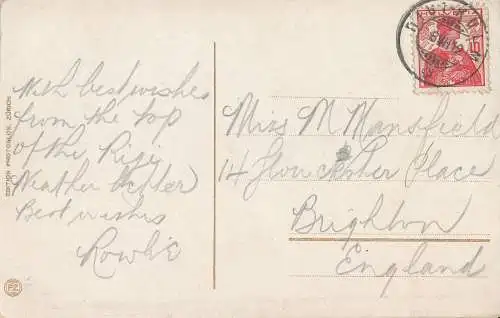 With best wishes
from the top
of the Rigi
Weather
Best wishes
Rowlie
Miss M Mansfield
14 Gloucester Place
Brighton
England
EDITION PHOTOGLOB, ZÜRICH
PZ
10